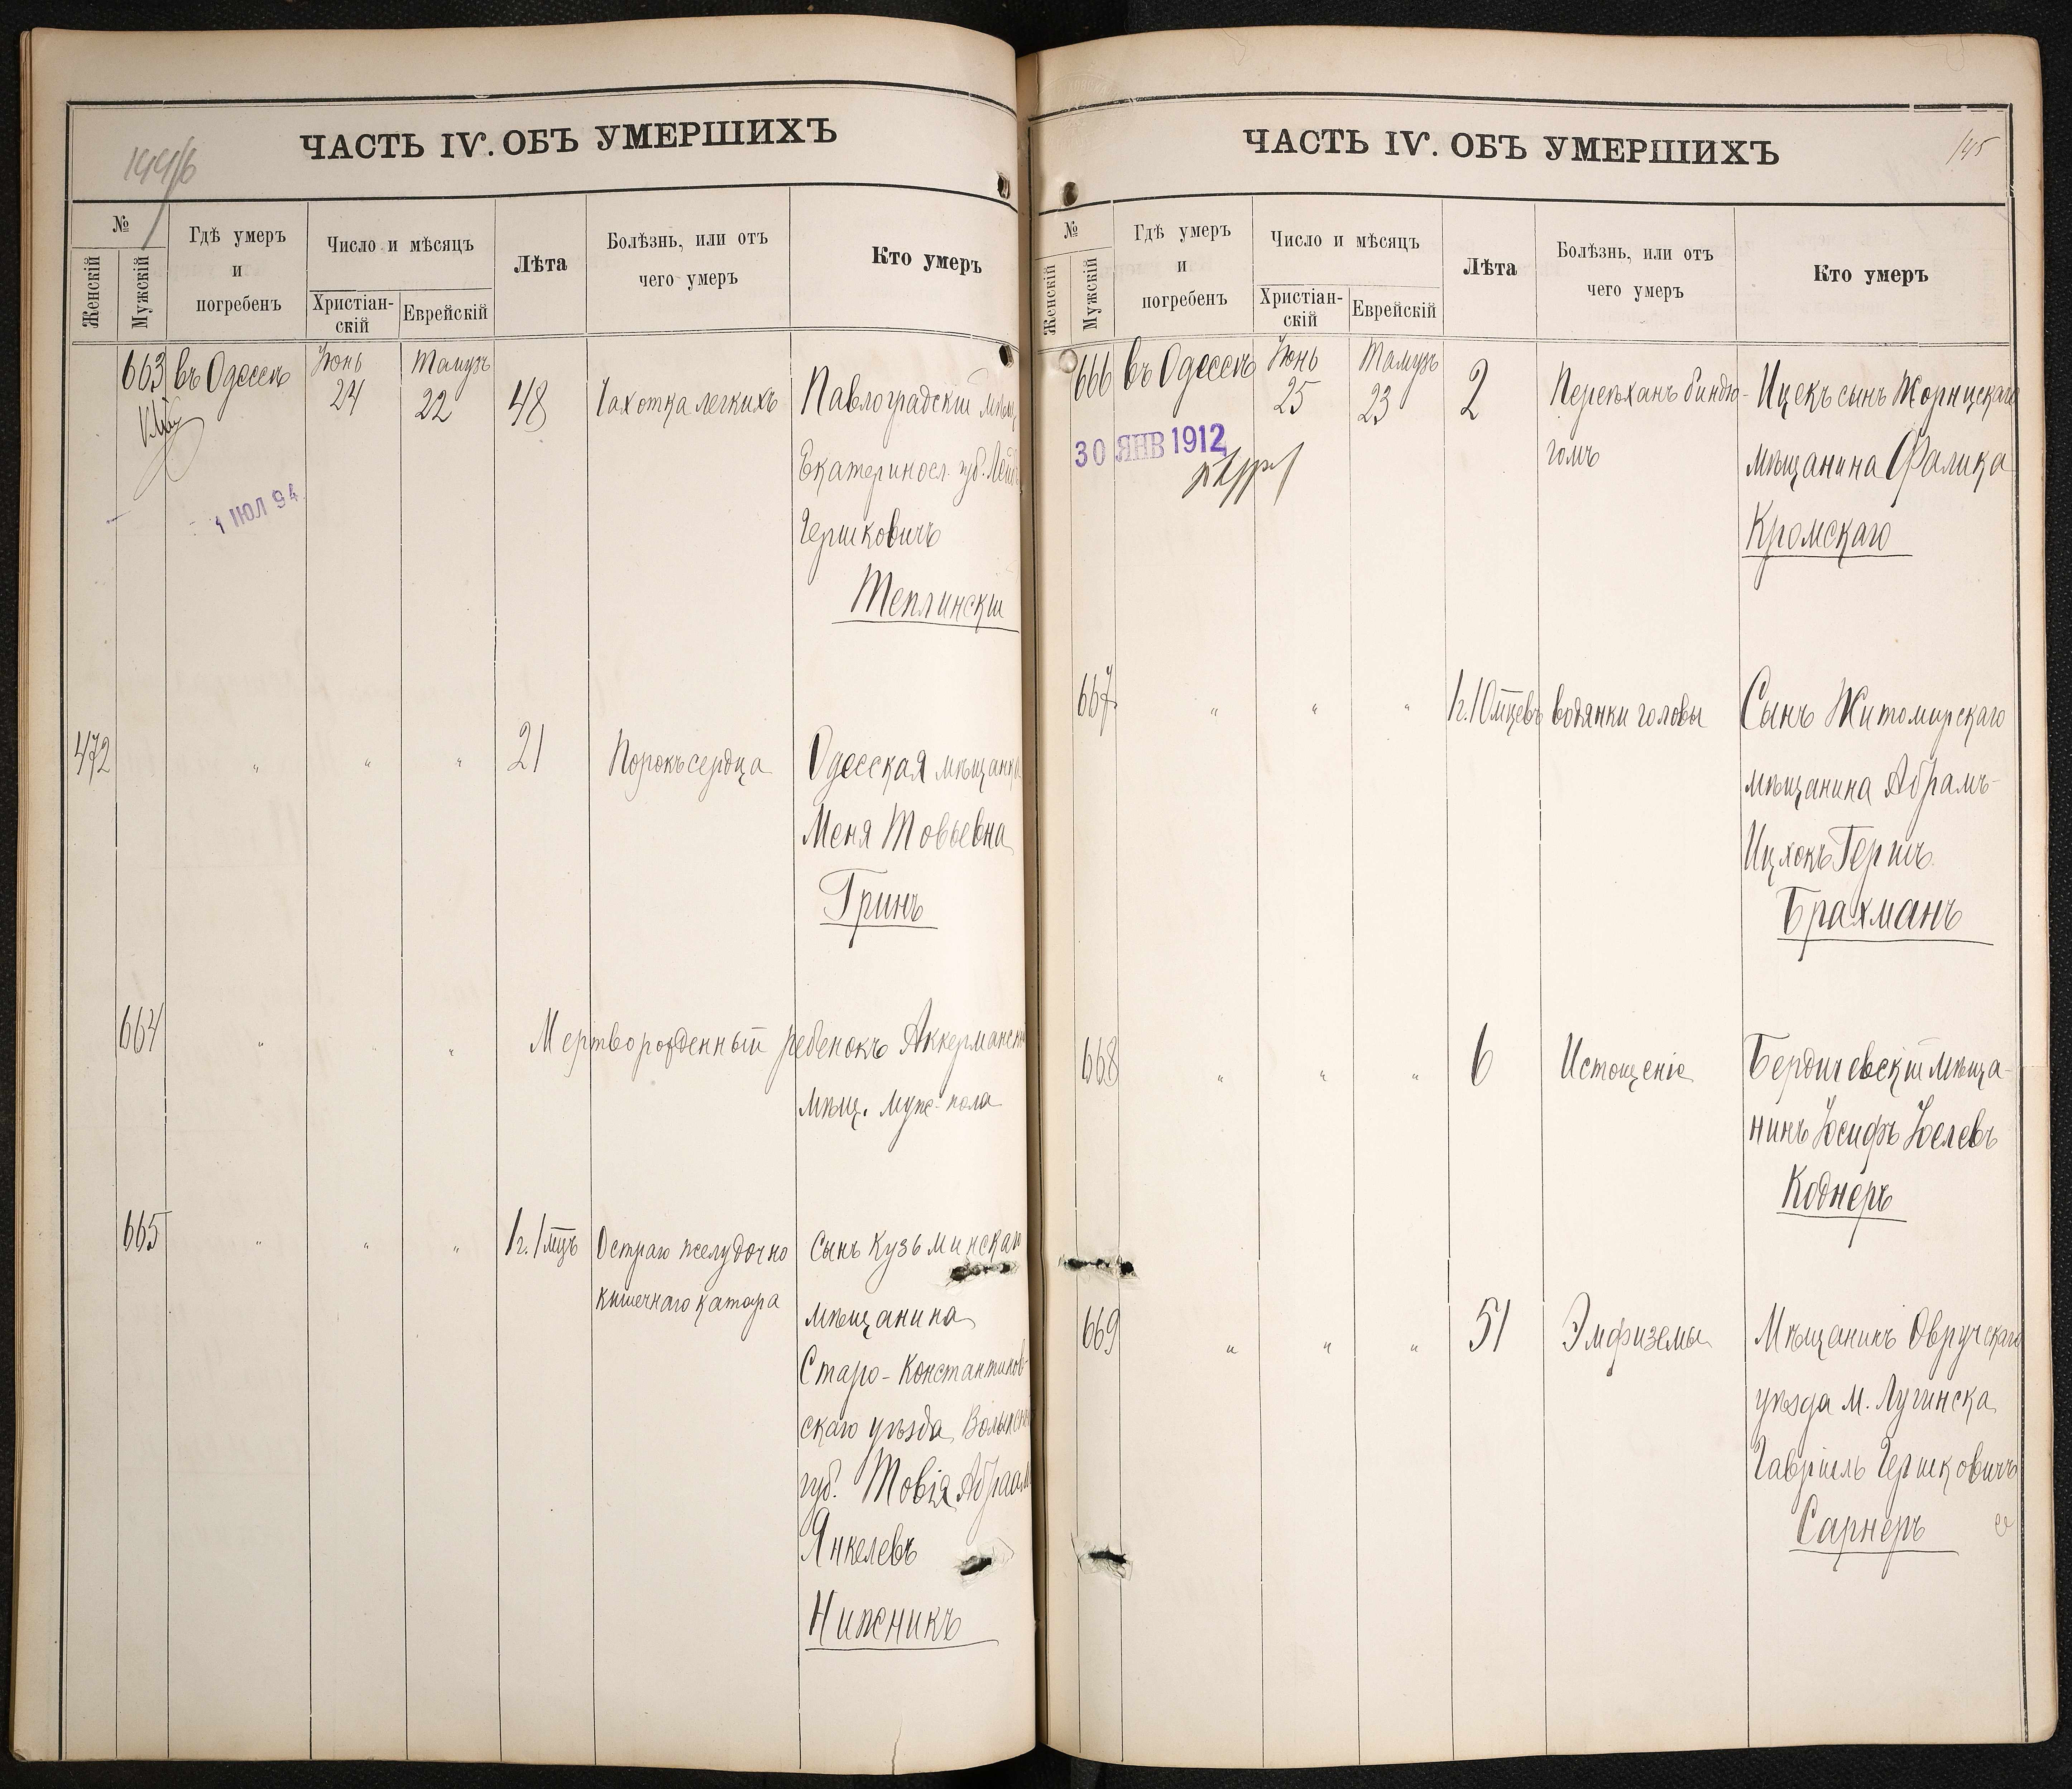 ЧАСТЬ IV. ОБЪ УМЕРШИХЪ
№
Женскій
Мужскій
Гдѣ умеръ
и
погребенъ
Число и мѣсяцъ
Христіан-
скій
Еврейскій
Лѣта
Болѣзнь, или отъ
чего умеръ
Кто умеръ
663 въ Одессѣ Іюнь 24 Тамузъ 22 48 Чахотка легкихъ Павлоградскій мѣщ.
Екатериносл. губ.
Гершковичъ
Теплинскій
1 ІЮЛ 94
472 " " " 21 Порокъ сердца Одесская мѣщанка
Меня Товьевна
Гринъ
664 " " " Мертворожденный ребенокъ Аккерманск
мѣщ. муж. пола
665 " " " 1 г. 1 мцъ Остраго желудочно Сынъ Кузьминскаго
кишечнаго катара
мѣщанина
Старо-Константинов-
скаго уѣзда Волынск
губ. Товія Абраам
Янкелевъ
Нижникъ
ЧАСТЬ IV. ОБЪ УМЕРШИХЪ
145
№
Женскій
Мужскій
Гдѣ умеръ
и
погребенъ
Число и мѣсяцъ
Христіан-
скій
Еврейскій
Лѣта
Болѣзнь, или отъ
чего умеръ
Кто умеръ
666 въ Одессѣ Іюнь 25 Тамузъ 23 2 Переѣханъ биндю- Ицекъ сынъ Жорнцскаго
гомъ мѣщанина Фалика
30 ЯНВ 1912
Кромскаго
667 " " " 1 г. 10 мцевъ водянки головы Сынъ Житомирскаго
мѣщанина Абрамъ-
Ицхокъ Гершъ
Брахманъ
668 " " " 6 Истощеніе Бердичевскій мѣща-
нинъ Іосифъ Іоселевъ
Коднеръ
669 " " " 51 Эмфиземы Мѣщанинъ Овручскаго
уѣзда м. Лугинска
Гавріилъ Гершковичъ
Сарнеръ